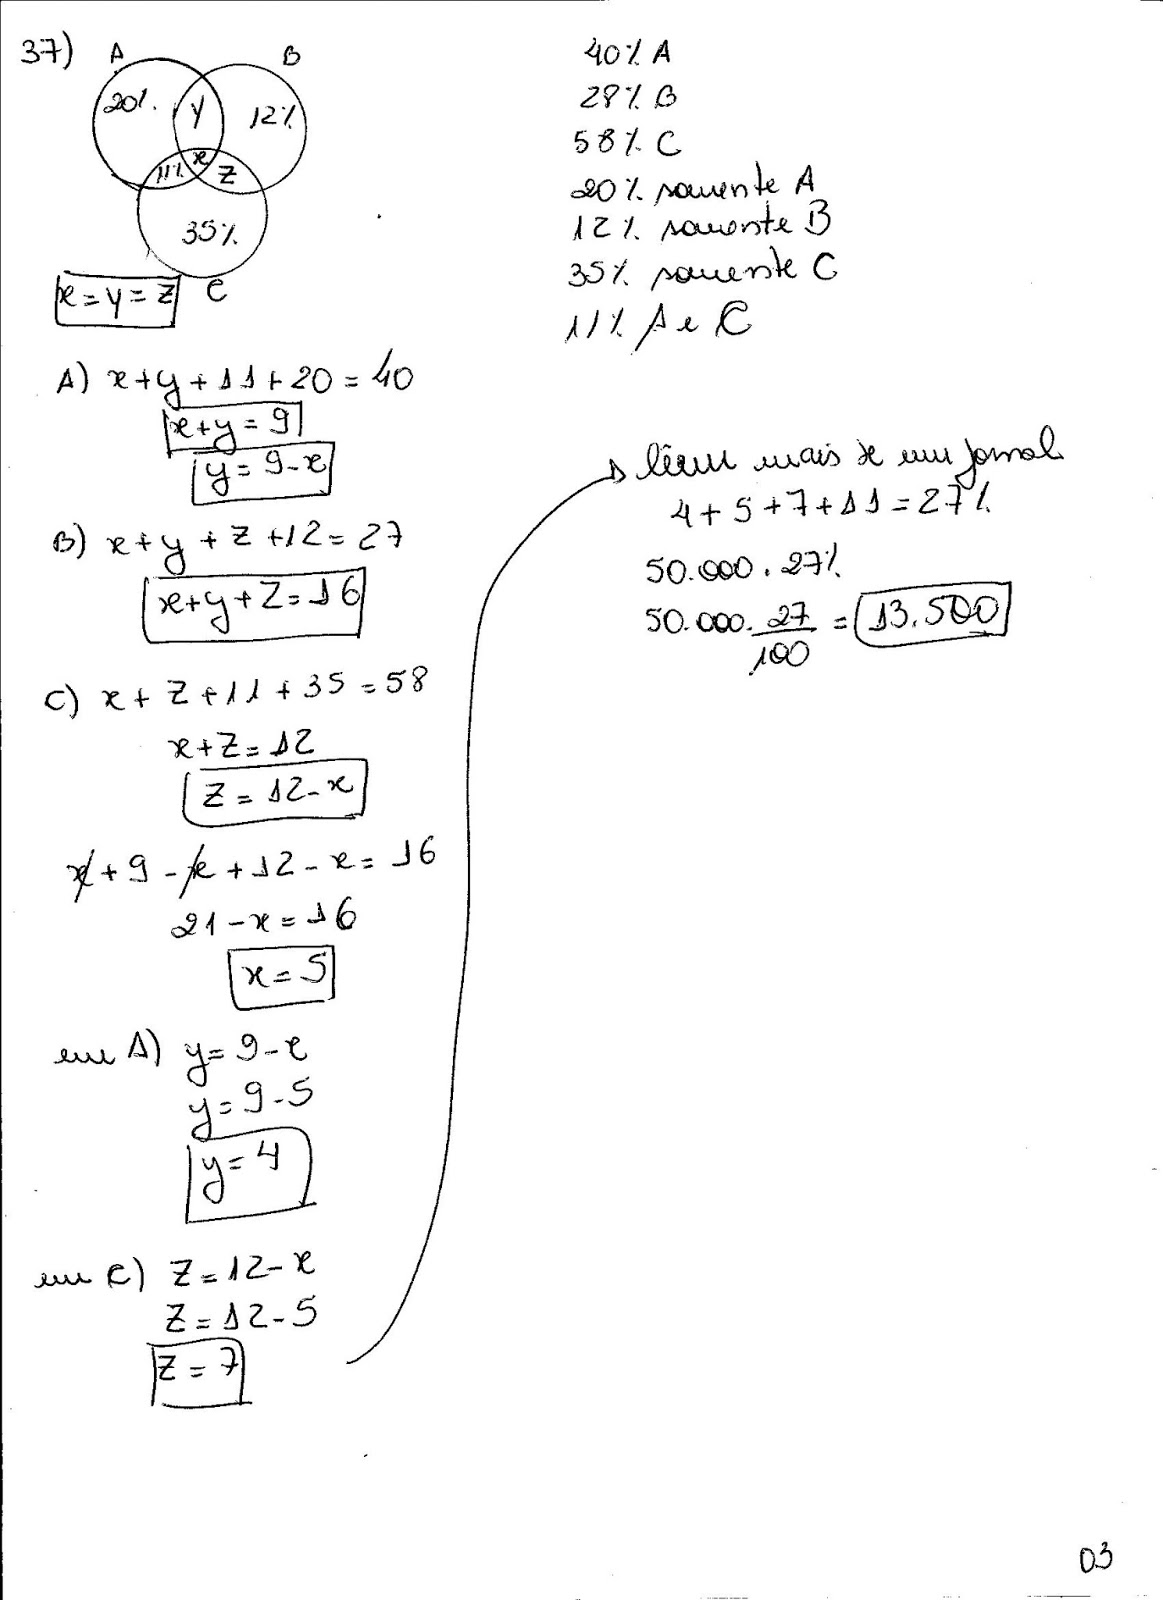 37) A B
20%. y 12%
11% x z
35%
C
x = y = z
40% A
28% B
58% C
20% somente A
12% somente B
35% somente C
11% A e C
A) x + y + 11 + 20 = 40
x + y = 9
y = 9 - x
B) x + y + z + 12 = 27
x + y + z = 16
C) x + z + 11 + 35 = 58
x + z = 12
z = 12 - x
x + 9 - x + 12 - x = 16
21 - x = 16
x = 5
em A) y = 9 - x
y = 9 - 5
y = 4
em C) z = 12 - x
z = 12 - 5
z = 7
lêem mais de um jornal
4 + 5 + 7 + 11 = 27%
50.000 . 27%
50.000 . 27/100 = 13.500
03